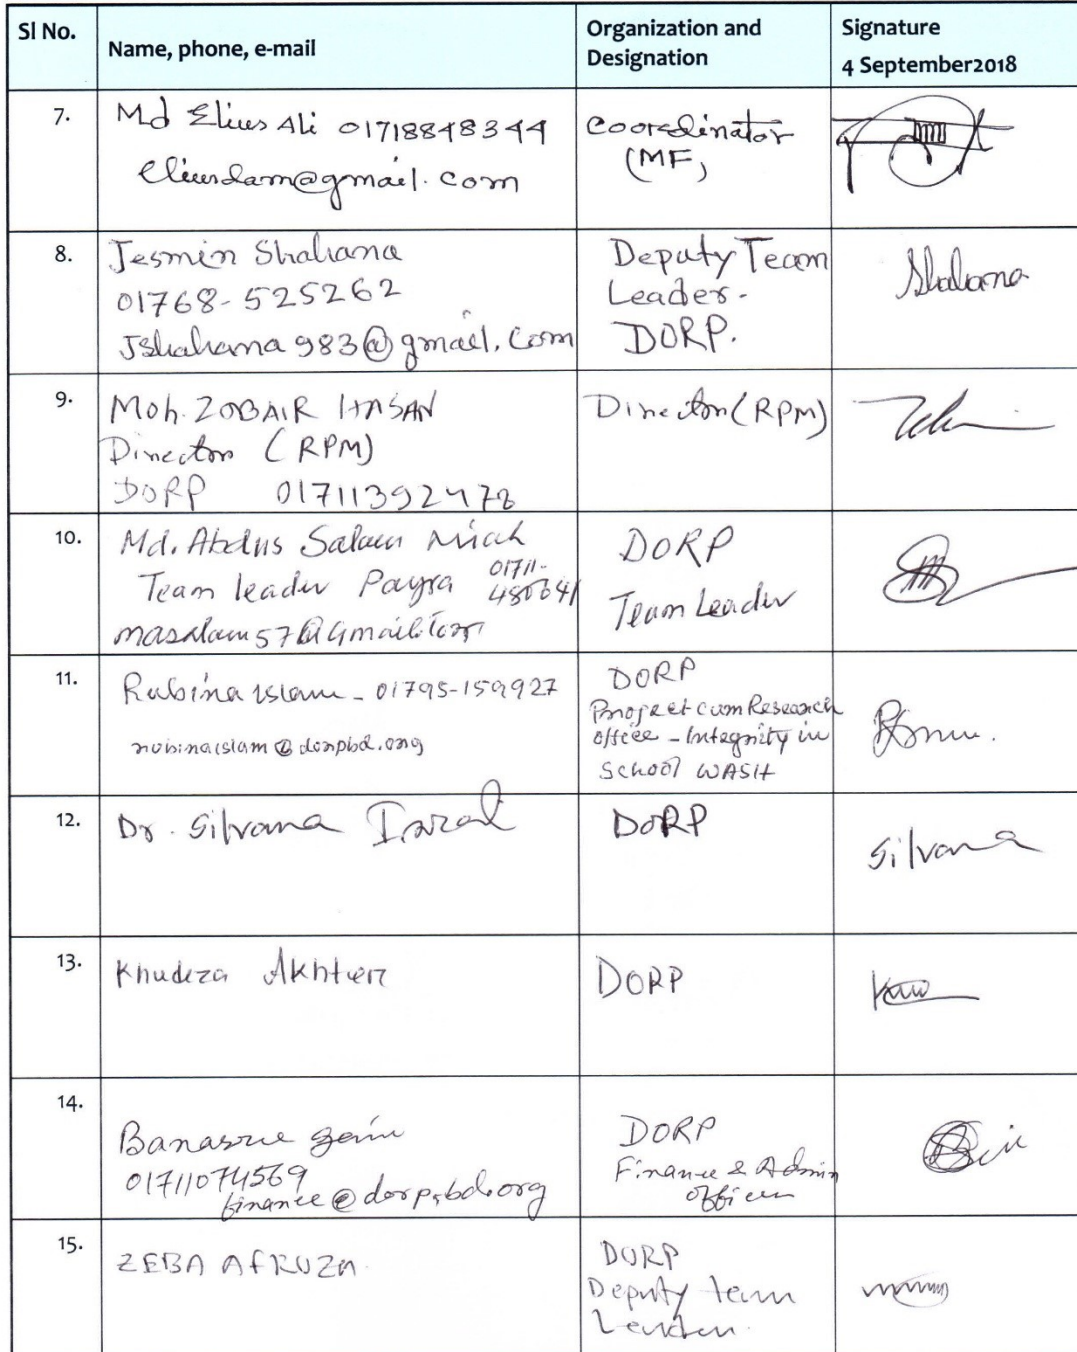 Sl No.
Name, phone, e-mail
Organization and
Designation
Signature
4 September2018
7.
Md Elius Ali 01718848344
eliusdam@gmail.com
Coordinator
(MF)
8.
Jesmin Shahana
01768-525262
Jshahana983@gmail.com
Deputy Team
Leader-
DORP.
Shahana
9.
Moh. ZOBAIR HASAN
Director (RPM)
DORP 01711392478
Director (RPM)
10.
Md. Abdus Salam Miah
Team leader Payra 01711-
masalam57@Gmail.com
DORP
Team Leader
11.
Rubina Islam - 01795-159927
rubinaislam@dorpbd.org
DORP
Project cum Research
officee - Integrity in
School WASH
12.
Dr. Silvana
DORP
Silvana
13.
Khudeza Akhter
DORP
14.
Banasree
01711074569
finance@dorpbd.org
DORP
Finance & Admin
officer
15.
ZEBA AFRUZA
DORP
Deputy team
Leader.